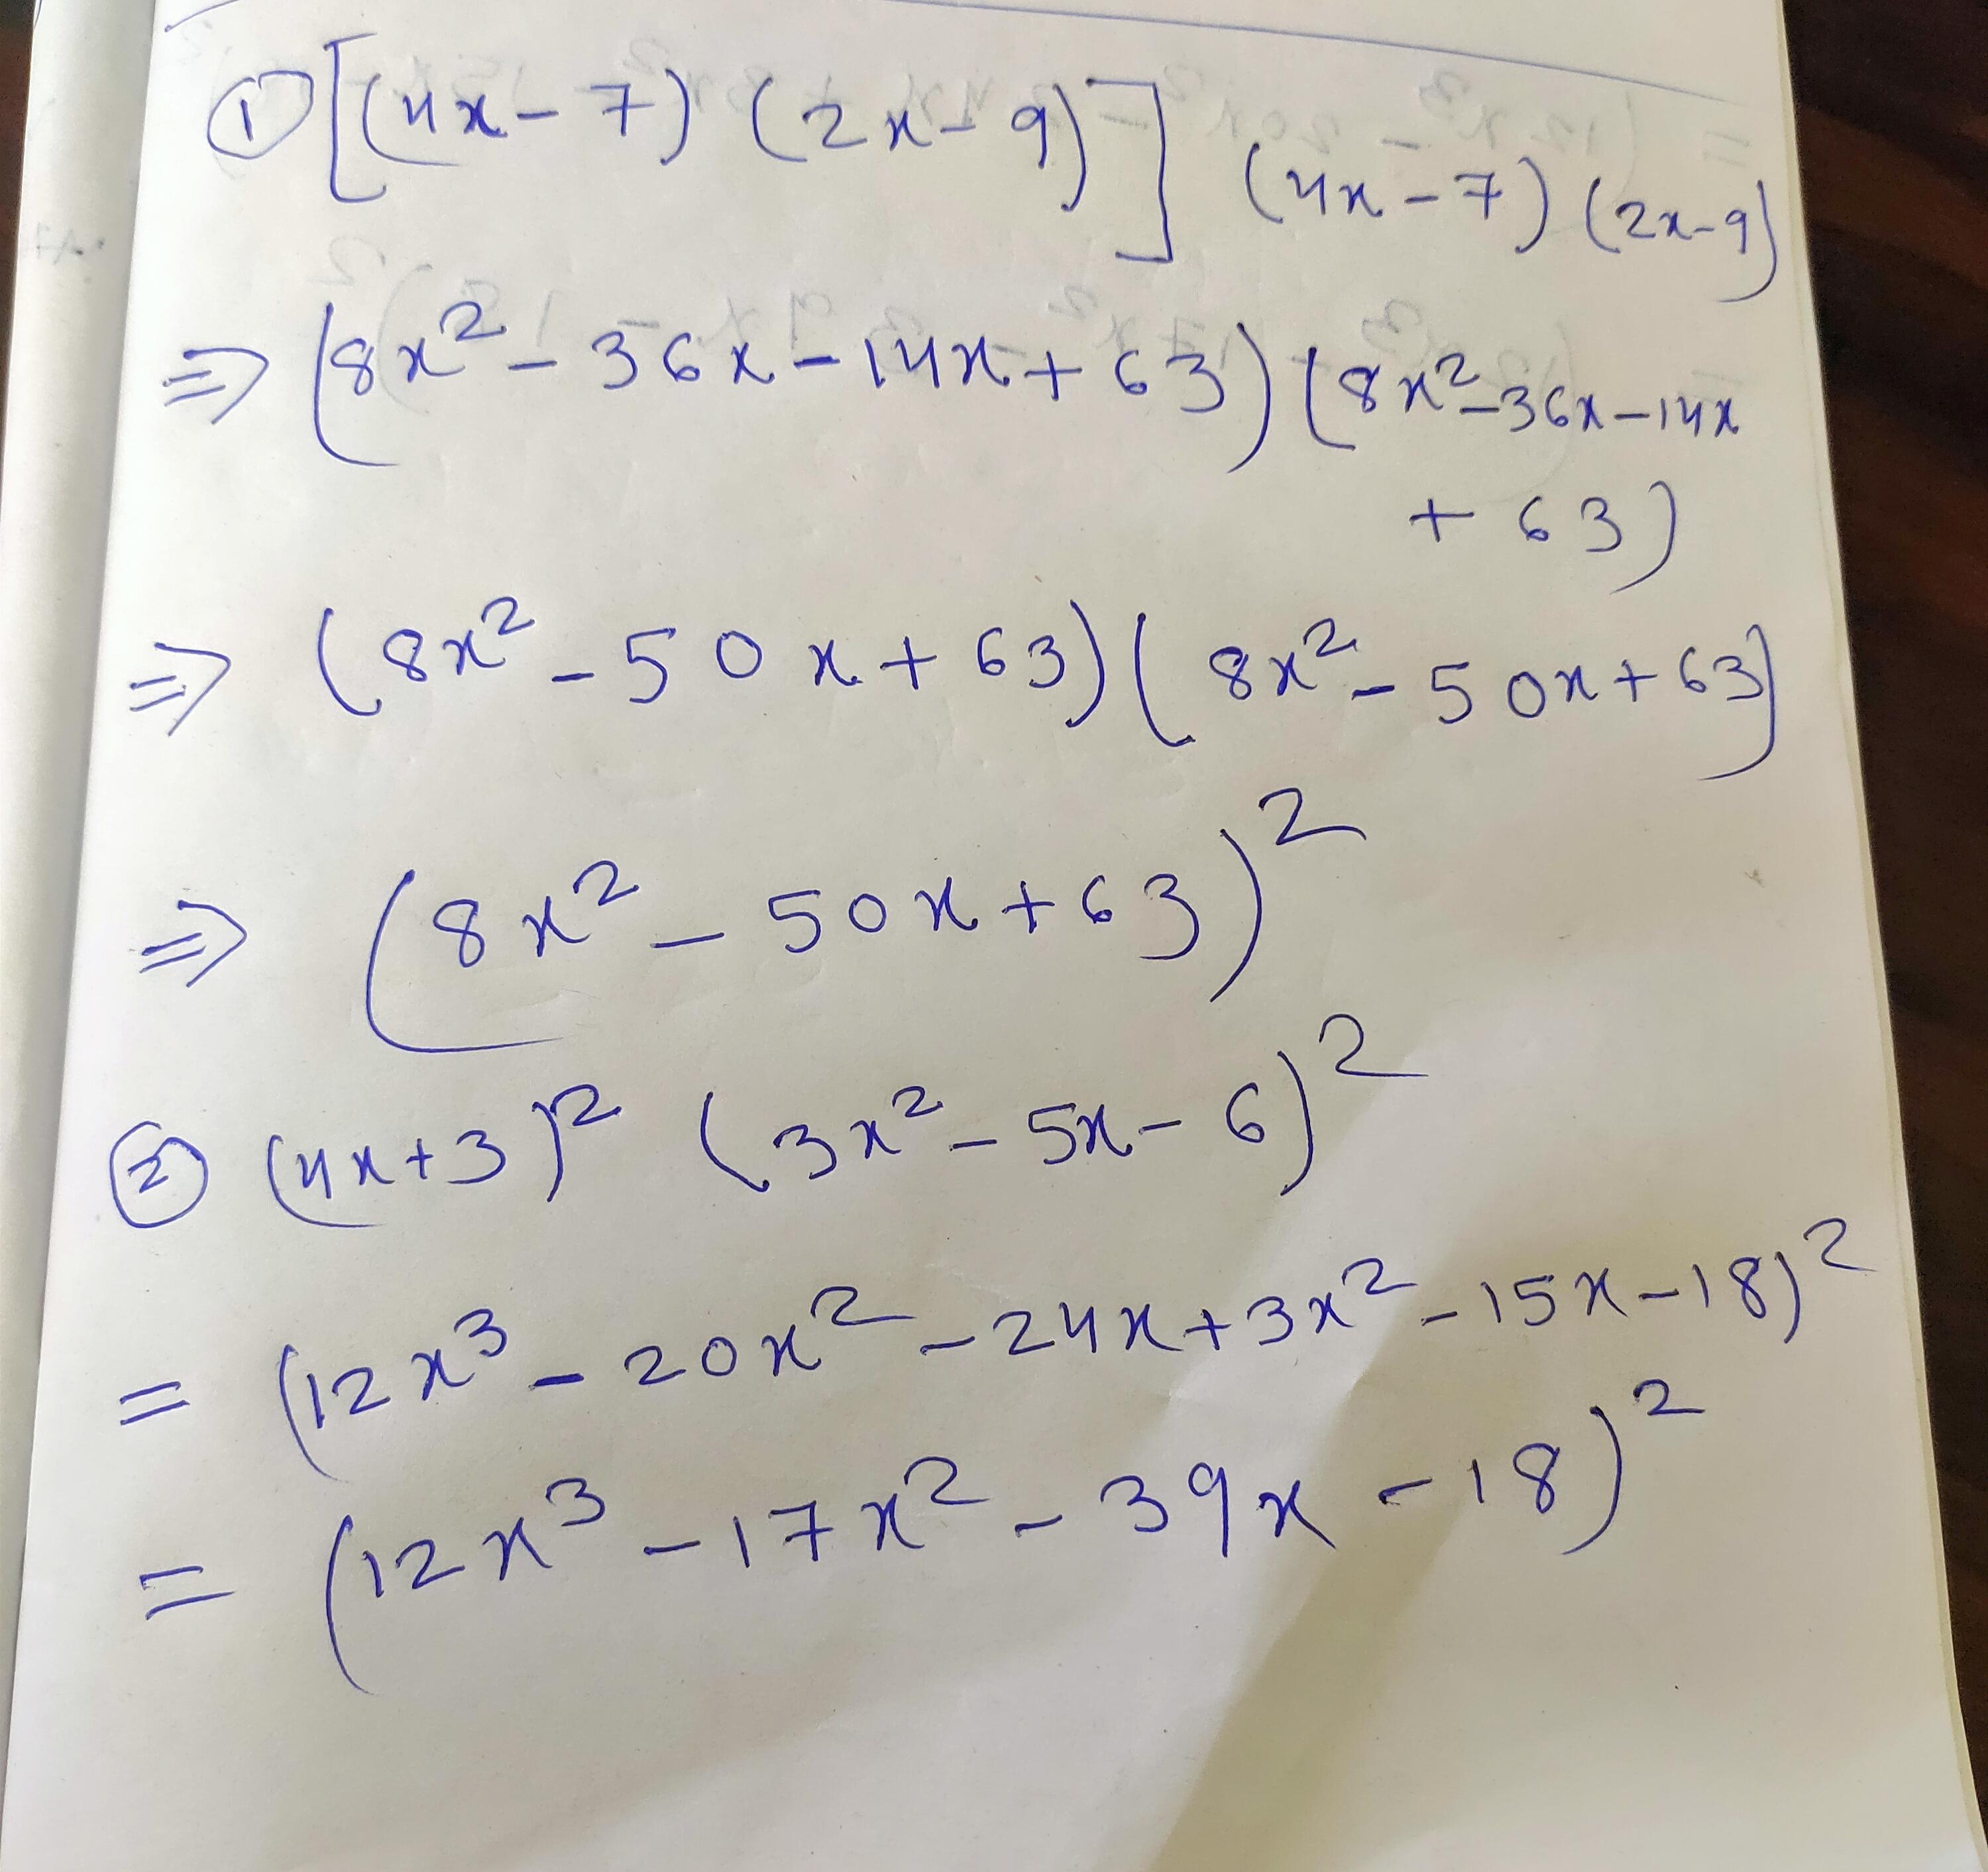 ① [(4x-7) (2x-9)] (4x-7) (2x-9)
⇒ (8x² - 36x - 14x + 63) (8x² - 36x - 14x
+ 63)
⇒ (8x² - 50x + 63) (8x² - 50x + 63)
⇒ (8x² - 50x + 63)²
② (4x+3)² (3x² - 5x - 6)²
= (12x³ - 20x² - 24x + 3x² - 15x - 18)²
= (12x³ - 17x² - 39x - 18)²